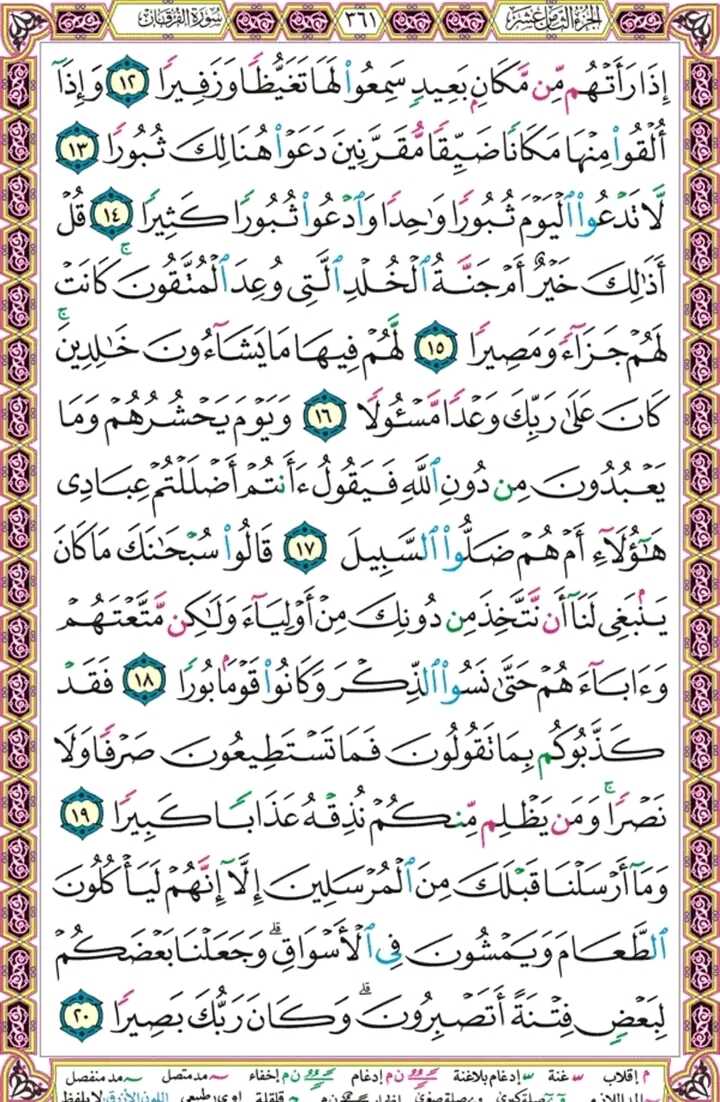 الجزء الثامن عشر ٣٦١ سورة الفرقان
إِذَا رَأَتْهُم مِّن مَّكَانٍ بَعِيدٍ سَمِعُوا۟ لَهَا تَغَيُّظًا وَزَفِيرًا ١٢ وَإِذَآ
أُلْقُوا۟ مِنْهَا مَكَانًا ضَيِّقًا مُّقَرَّنِينَ دَعَوْا۟ هُنَالِكَ ثُبُورًا ١٣
لَّا تَدْعُوا۟ ٱلْيَوْمَ ثُبُورًا وَٰحِدًا وَٱدْعُوا۟ ثُبُورًا كَثِيرًا ١٤ قُلْ
أَذَٰلِكَ خَيْرٌ أَمْ جَنَّةُ ٱلْخُلْدِ ٱلَّتِى وُعِدَ ٱلْمُتَّقُونَ ۚ كَانَتْ
لَهُمْ جَزَآءً وَمَصِيرًا ١٥ لَّهُمْ فِيهَا مَا يَشَآءُونَ خَٰلِدِينَ ۚ
كَانَ عَلَىٰ رَبِّكَ وَعْدًا مَّسْـُٔولًا ١٦ وَيَوْمَ يَحْشُرُهُمْ وَمَا
يَعْبُدُونَ مِن دُونِ ٱللَّهِ فَيَقُولُ ءَأَنتُمْ أَضْلَلْتُمْ عِبَادِى
هَٰٓؤُلَآءِ أَمْ هُمْ ضَلُّوا۟ ٱلسَّبِيلَ ١٧ قَالُوا۟ سُبْحَٰنَكَ مَا كَانَ
يَنۢبَغِى لَنَآ أَن نَّتَّخِذَ مِن دُونِكَ مِنْ أَوْلِيَآءَ وَلَٰكِن مَّتَّعْتَهُمْ
وَءَابَآءَهُمْ حَتَّىٰ نَسُوا۟ ٱلذِّكْرَ وَكَانُوا۟ قَوْمًۢا بُورًا ١٨ فَقَدْ
كَذَّبُوكُم بِمَا تَقُولُونَ فَمَا تَسْتَطِيعُونَ صَرْفًا وَلَا
نَصْرًا ۚ وَمَن يَظْلِم مِّنكُمْ نُذِقْهُ عَذَابًا كَبِيرًا ١٩
وَمَآ أَرْسَلْنَا قَبْلَكَ مِنَ ٱلْمُرْسَلِينَ إِلَّآ إِنَّهُمْ لَيَأْكُلُونَ
ٱلطَّعَامَ وَيَمْشُونَ فِى ٱلْأَسْوَاقِ ۗ وَجَعَلْنَا بَعْضَكُمْ
لِبَعْضٍ فِتْنَةً أَتَصْبِرُونَ ۗ وَكَانَ رَبُّكَ بَصِيرًا ٢٠
م إقلاب غنة إدغام بلاغنة ن م إدغام ن م إخفاء مد متصل مد منفصل